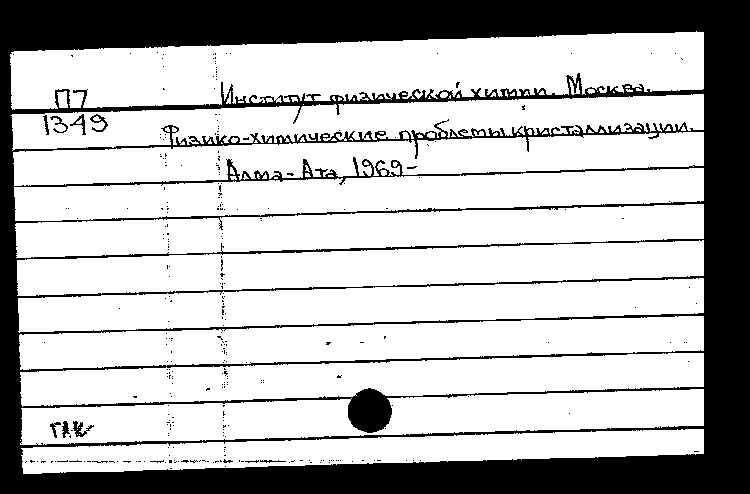 П7
1349
Институт физической химии. Москва.
Физико-химические проблемы кристаллизации.
Алма-Ата, 1969-